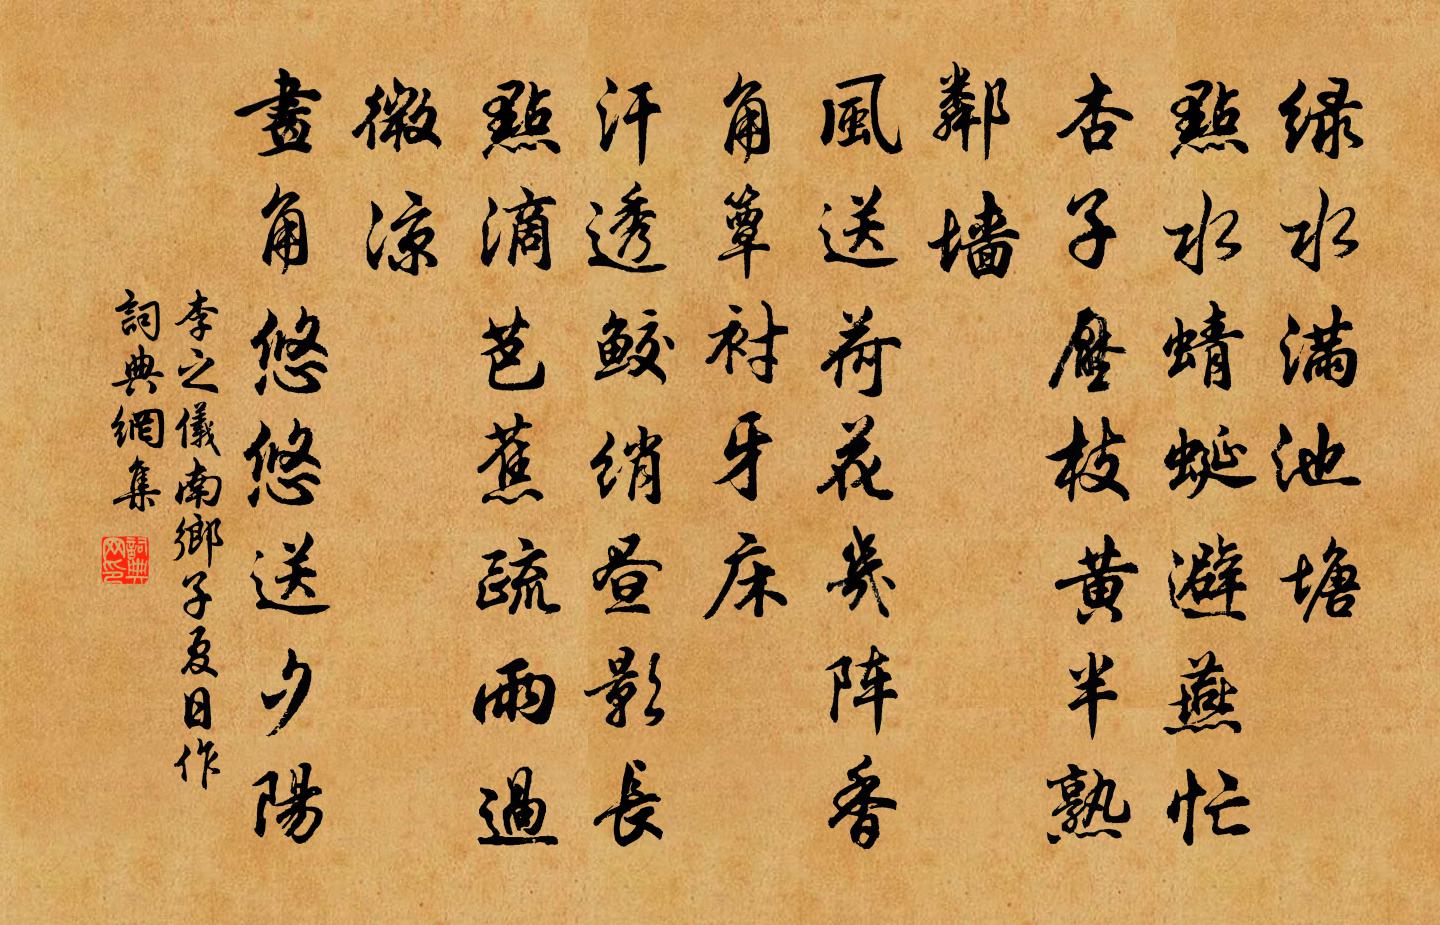 绿水满池塘
點水蜻蜓避燕忙
杏子壓枝黄半熟
鄰墙
風送荷花幾阵香
角簟衬牙床
汗透鲛绡昼影長
點滴芭蕉疏雨過
微凉
畫角悠悠送夕陽
李之儀南鄉子夏日作
詞典網集
詞典网印